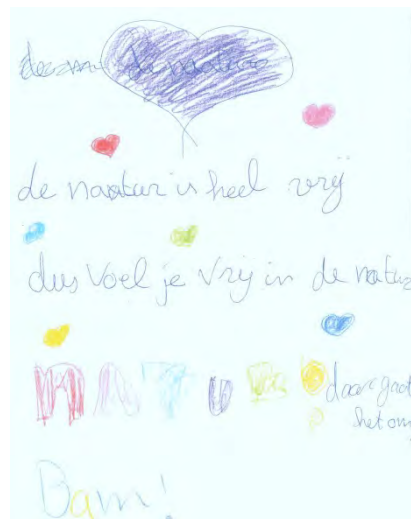 de natuur
de naatuur is heel vrij
dus voel je vrij in de natuur
NATUUR daar gaat
het om
Bam!